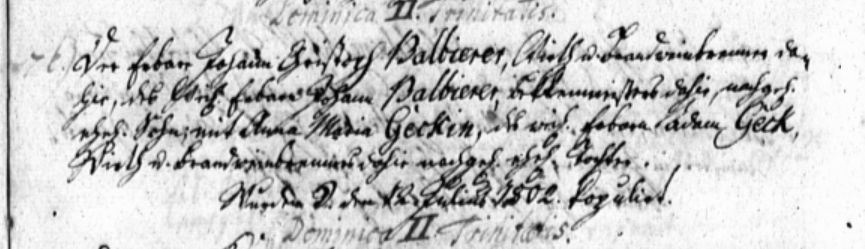 Dominica II. Trinitatis.
Der Erbare Johann Christoph Balbierer, Wirth u. Brandweinbrenner da-
hie, des Weil. Erbarn Johann Balbierer, Beckenmeisters dahie, nachgel.
ehel. Sohn; mit Anna Maria Geckin, des weil. Erbarn Adam Geck,
Wirth u. Brandweinbrenners dahie nachgel. ehel. Tochter.
Wurden d. den Julius 1802. kopulirt.
Dominica II Trinitatis.